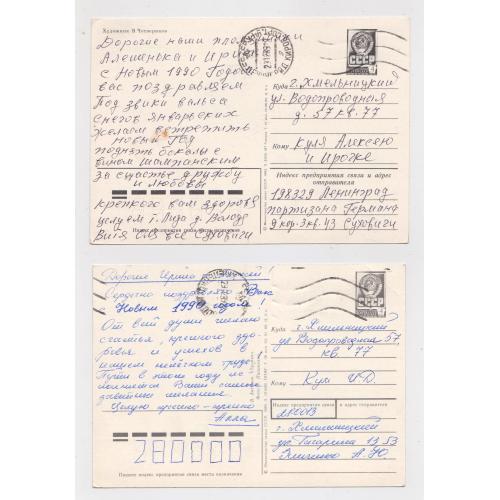 Художник В. Четвериков
Дорогие наши
Алешенька и Ириш
с Новым 1990 Годом
вас поздравляем
Под звуки вальса
снегов январских
желаем встретить
новый Год
поднять бокалы с
вином шампанским
за счастье дружбу
и любовь
крепкого вам здоровья
целуем т. Лида д. Володя
Витя все Суховичи
СССР
Куда г. Хмельницкий
ул. Водопроводная
д. 57 кв. 77
Кому Куля Алексею
и Ирочке
Индекс предприятия связи и адрес
отправителя
198329 Ленинград
Партизана Германа
д кор. 3 кв. 43 Суховичи
Дорогие Ирина
Сердечно поздравляю Вас с
Новым 1990 годом!
От всей души желаю
счастья, крепкого здо-
ровья и успехов в
вашем нелёгком труде.
Пусть в этом году ис-
полнится Ваше самое
давнишнее желание.
Целую крепко-крепко
Алла
280000
Пишите индекс предприятия связи места назначения
СССР
Куда г. Хмельницкий
ул Водопроводная 57
кв. 77
Кому Куля
Индекс предприятия связи и адрес отправителя
280013
г. Хмельницкий
ул. Гагарина 13 53